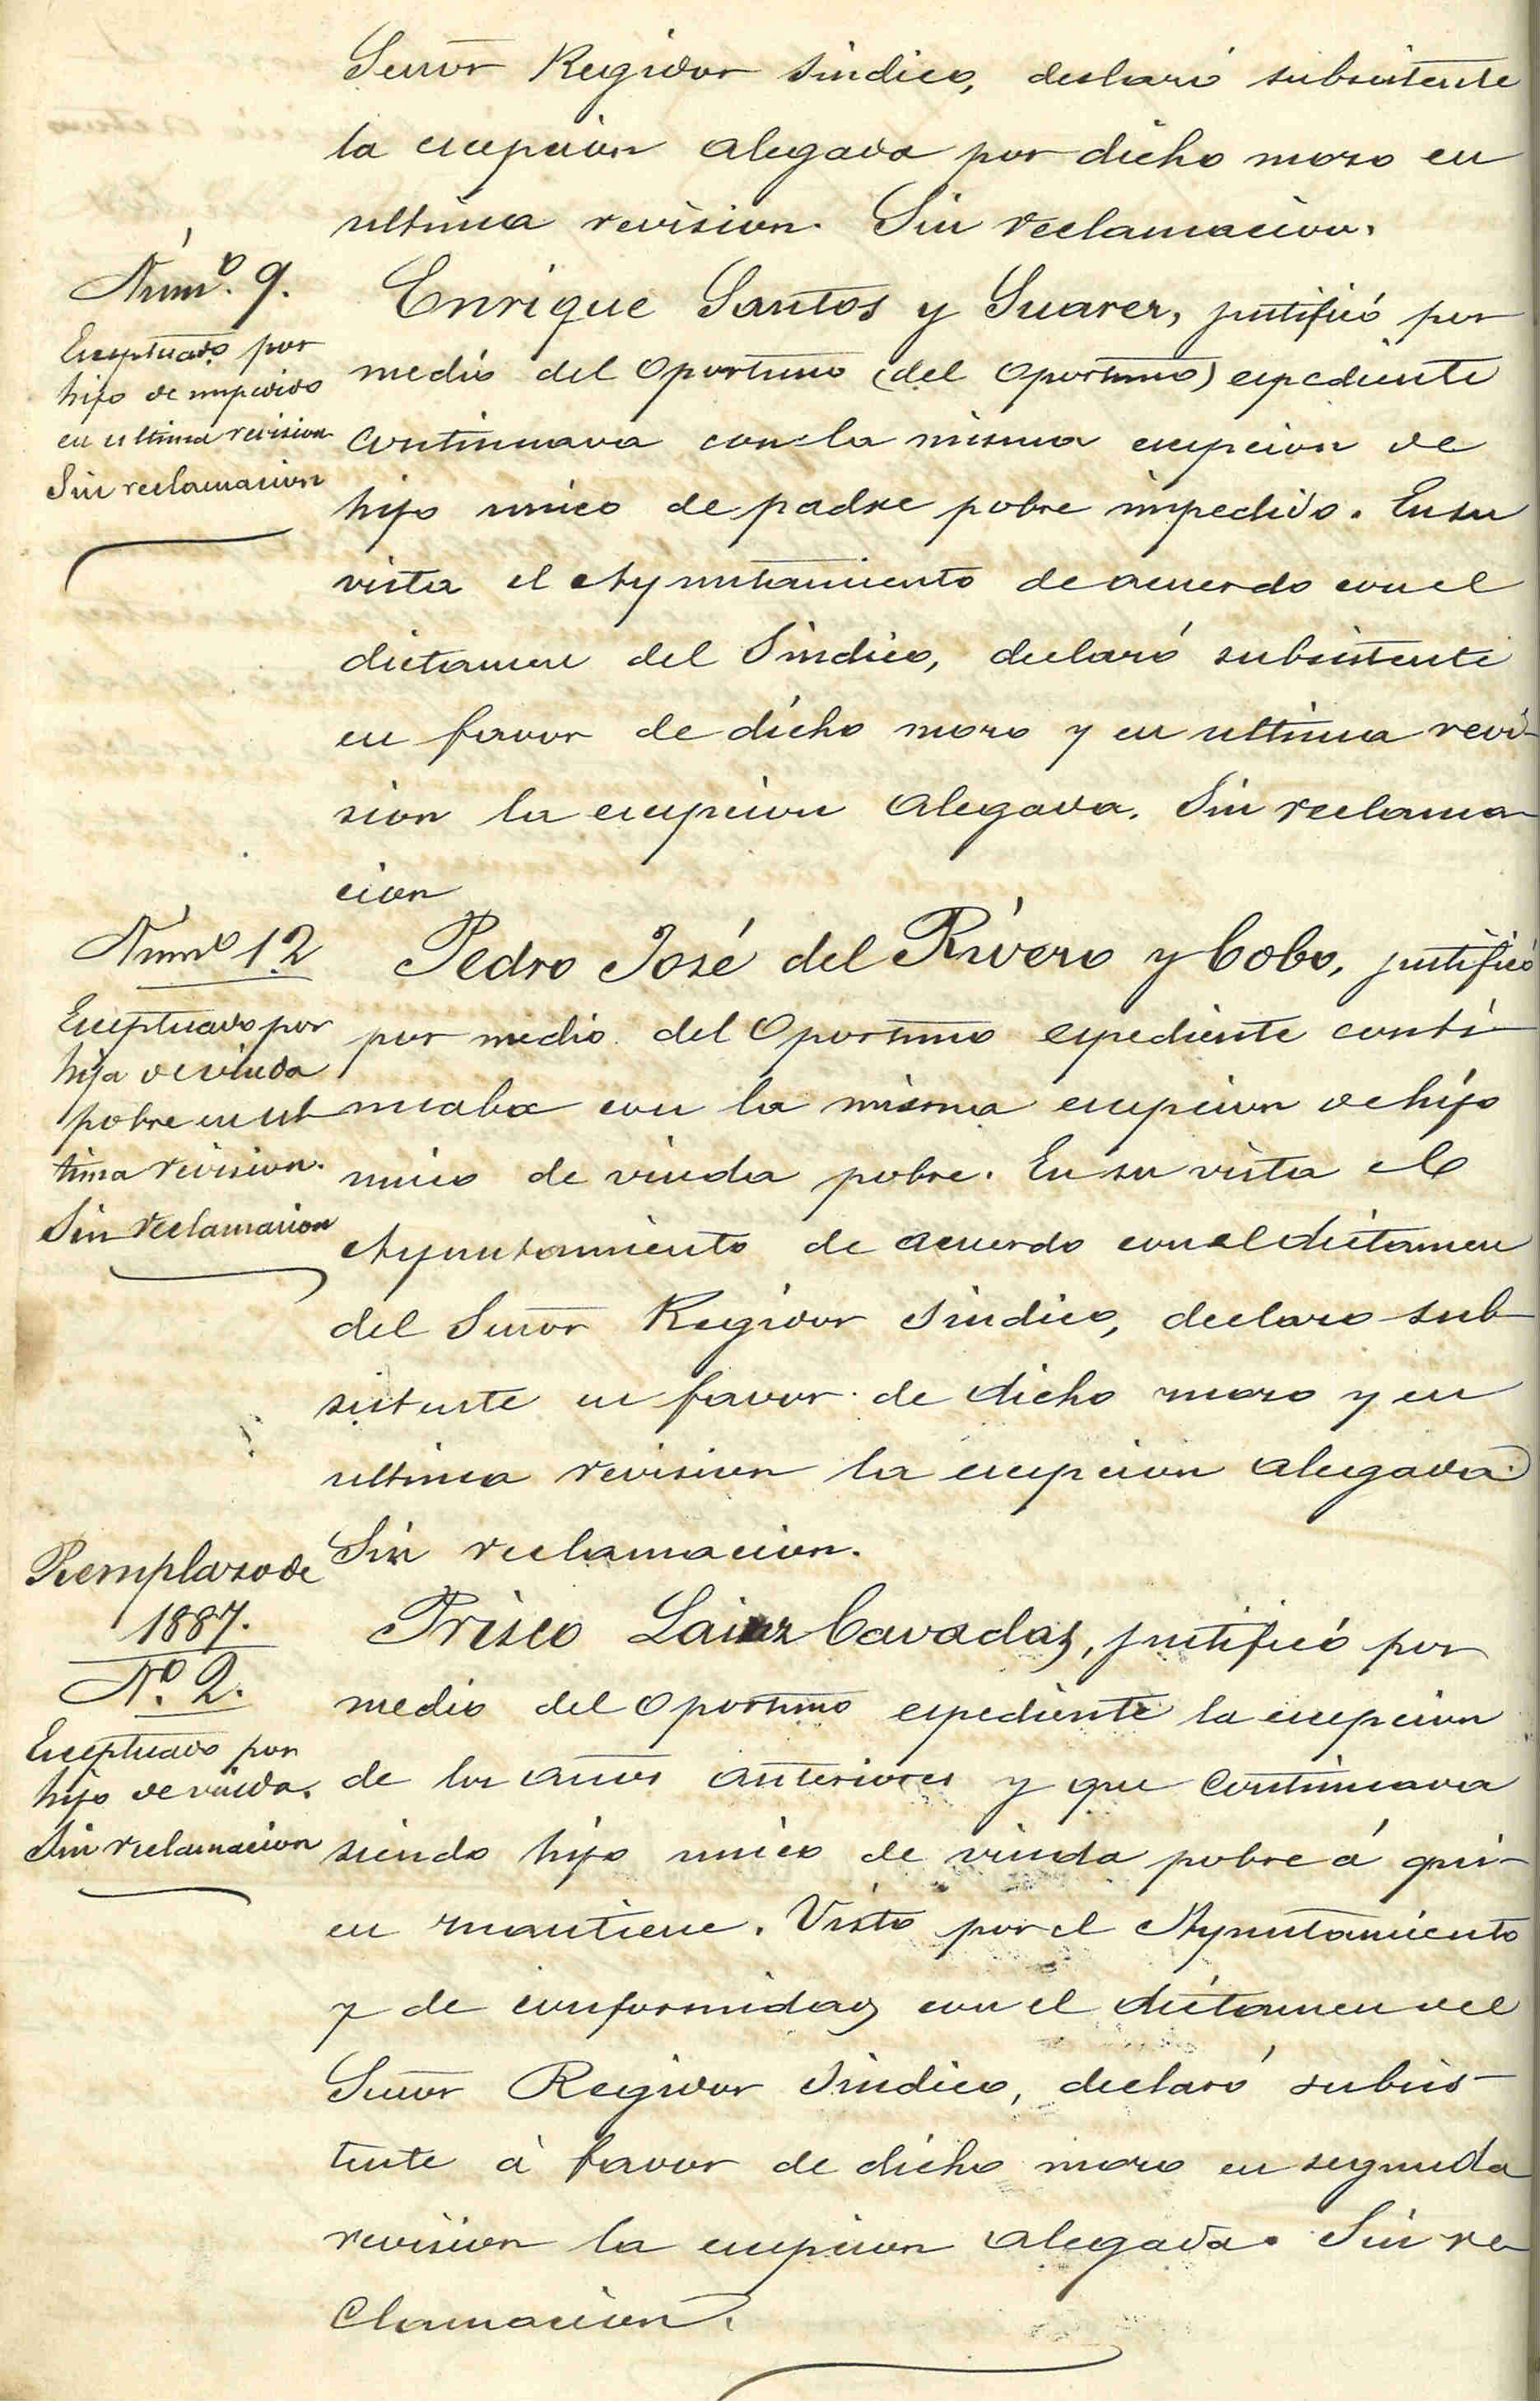 Señor Regidor Sindico, declaró subsistente
la excepcion alegada por dicho mozo en
ultima revision. Sin reclamacion.
Núm.º 9.
Exceptuado por
hijo de impedido
en ultima revision
Sin reclamacion
Enrique Santos y Suarez, justificó por
medio del oportuno (del oportuno) expediente
continuava con la misma excepcion de
hijo unico de padre pobre impedido. En su
vista el Ayuntamiento de acuerdo con el
dictamen del Sindico, declaró subsistente
en favor de dicho mozo y en ultima revi-
sion la excepcion alegada. Sin reclama-
cion
Númº 12
Exceptuado por
hijo de viuda
pobre en ul-
tima revision.
Sin reclamacion
Pedro José del Rivero y Cobo, justificó
por medio del oportuno expediente conti-
nuaba con la misma excepcion de hijo
unico de viuda pobre. En su vista el
Ayuntamiento de acuerdo con el dictamen
del Señor Regidor Sindico, declaro sub-
sistente en favor de dicho mozo y en
ultima revision la excepcion alegada.
Sin reclamacion.
Remplazo de
1887.
Nº. 2.
Exceptuado por
hijo de viuda.
Sin reclamacion
Prisco Lainz Cavadas, justificó por
medio del oportuno expediente la excepcion
de los años anteriores y que continuava
siendo hijo unico de viuda pobre á qui-
en mantiene. Visto por el Ayuntamiento
y de conformidad con el dictamen del
Señor Regidor Sindico, declaró subsis-
tente á favor de dicho mozo en segunda
revision la excepcion alegada. Sin re-
clamacion.